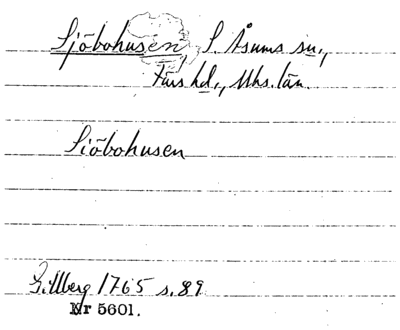 Sjöbohusen, S. Åsums sn.,
Färs hd., Mhs. län.
Siöbohusen
Gillberg 1765 s. 89.
Nr 5601.